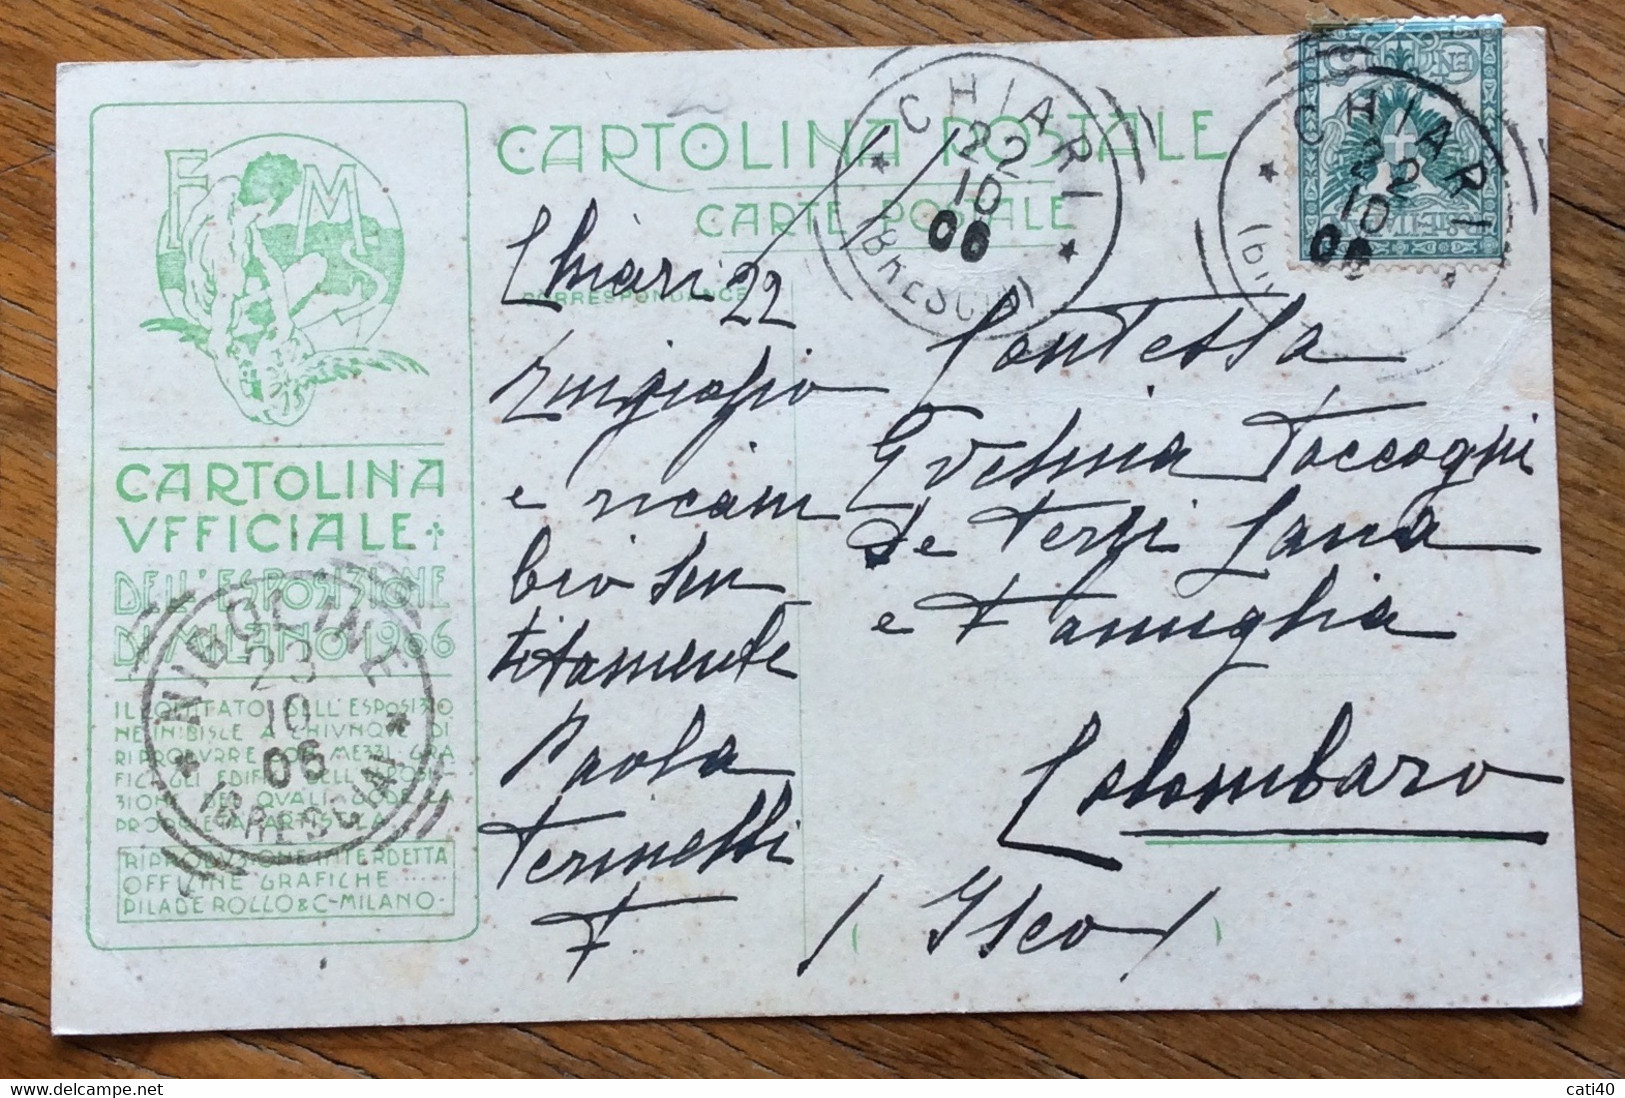 CARTOLINA POSTALE
CARTE POSTALE
CORRESPONDANCE
F M S
CARTOLINA
VFFICIALE
DELL'ESPOSIZIONE
DI MILANO 1906
IL COMITATO DELL'ESPOSIZIO
NE INIBISCE A CHIVNQVE DI
RIPRODVRRE CON MEZZI GRA
FICI GLI EDIFICI DELL'ESPOSI-
ZIONE DEI QVALI GODE LA
PROPRIETA ARTISTICA
RIPRODVZIONE INTERDETTA
OFFICINE GRAFICHE
PILADE ROCCO & C-MILANO-
NIGOLINE
23
10
06
(BRESCIA)
CHIARI
22
10
06
(BRESCIA)
CHIARI
22
10
06
Chiari 22
Ringrazio
e ricam
bio sen
titamente
Paola
F.
Contessa
Evelina
de Terzi Lana
e Famiglia
Colombaro
(Iseo)
cati40